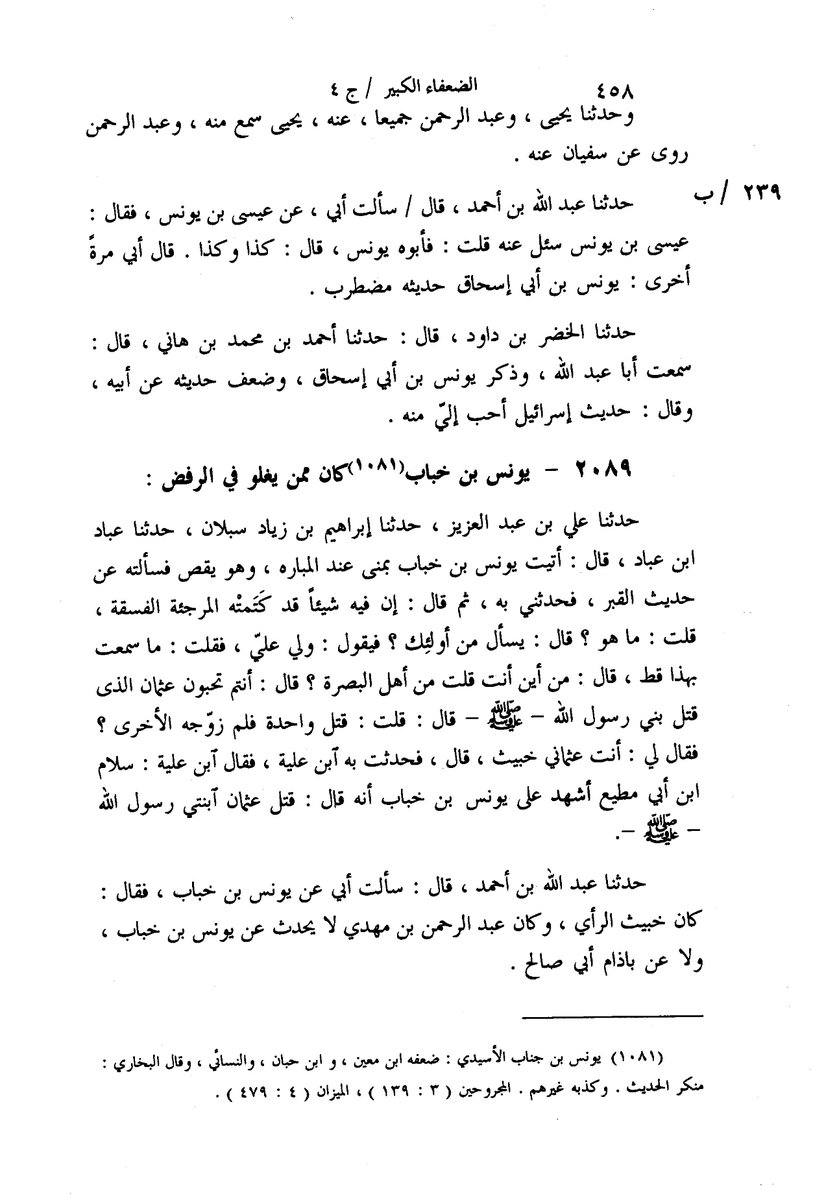 ٤٥٨ الضعفاء الكبير / ج ٤
وحدثنا يحيى ، وعبد الرحمن جميعا ، عنه ، يحيى سمع منه ، وعبد الرحمن
روى عن سفيان عنه .
٢٣٩ / ب
حدثنا عبد الله بن أحمد ، قال / سألت أبي ، عن عيسى بن يونس ، فقال :
عيسى بن يونس سئل عنه قلت : فأبوه يونس ، قال : كذا وكذا . قال أبي مرةً
أخرى : يونس بن أبي إسحاق حديثه مضطرب .
حدثنا الخضر بن داود ، قال : حدثنا أحمد بن محمد بن هاني ، قال :
سمعت أبا عبد الله ، وذكر يونس بن أبي إسحاق ، وضعف حديثه عن أبيه ،
وقال : حديث إسرائيل أحب إليّ منه .
٢٠٨٩ - يونس بن خباب(١٠٨١) كان ممن يغلو في الرفض :
حدثنا علي بن عبد العزيز ، حدثنا إبراهيم بن زياد سبلان ، حدثنا عباد
ابن عباد ، قال : أتيت يونس بن خباب بمنى عند المباره ، وهو يقص فسألته عن
حديث القبر ، فحدثني به ، ثم قال : إن فيه شيئاً قد كَتَمتْه المرجئة الفسقة ،
قلت : ما هو ؟ قال : يسأل من أولئِك ؟ فيقول : ولي عليّ ، فقلت : ما سمعت
بهذا قط ، قال : من أين أنت قلت من أهل البصرة ؟ قال : أنتم تحبون عثمان الذى
قتل بني رسول الله - ﷺ - قال : قلت : قتل واحدة فلم زوّجه الأخرى ؟
فقال لي : أنت عثماني خبيث ، قال ، فحدثت به ٱبن علية ، فقال ٱبن علية : سلام
ابن أبي مطيع أشهد على يونس بن خباب أنه قال : قتل عثمان ٱبنتي رسول الله
- ﷺ -.
حدثنا عبد الله بن أحمد ، قال : سألت أبي عن يونس بن خباب ، فقال :
كان خبيث الرأي ، وكان عبد الرحمن بن مهدي لا يحدث عن يونس بن خباب ،
ولا عن باذام أبي صالح .
(١٠٨١) يونس بن جناب الأسيدي : ضعفه ابن معين ، و ابن حبان ، والنسائي ، وقال البخاري :
منكر الحديث . وكذبه غيرهم . المجروحين ( ٣ : ١٣٩ ) ، الميزان ( ٤ : ٤٧٩ ) .